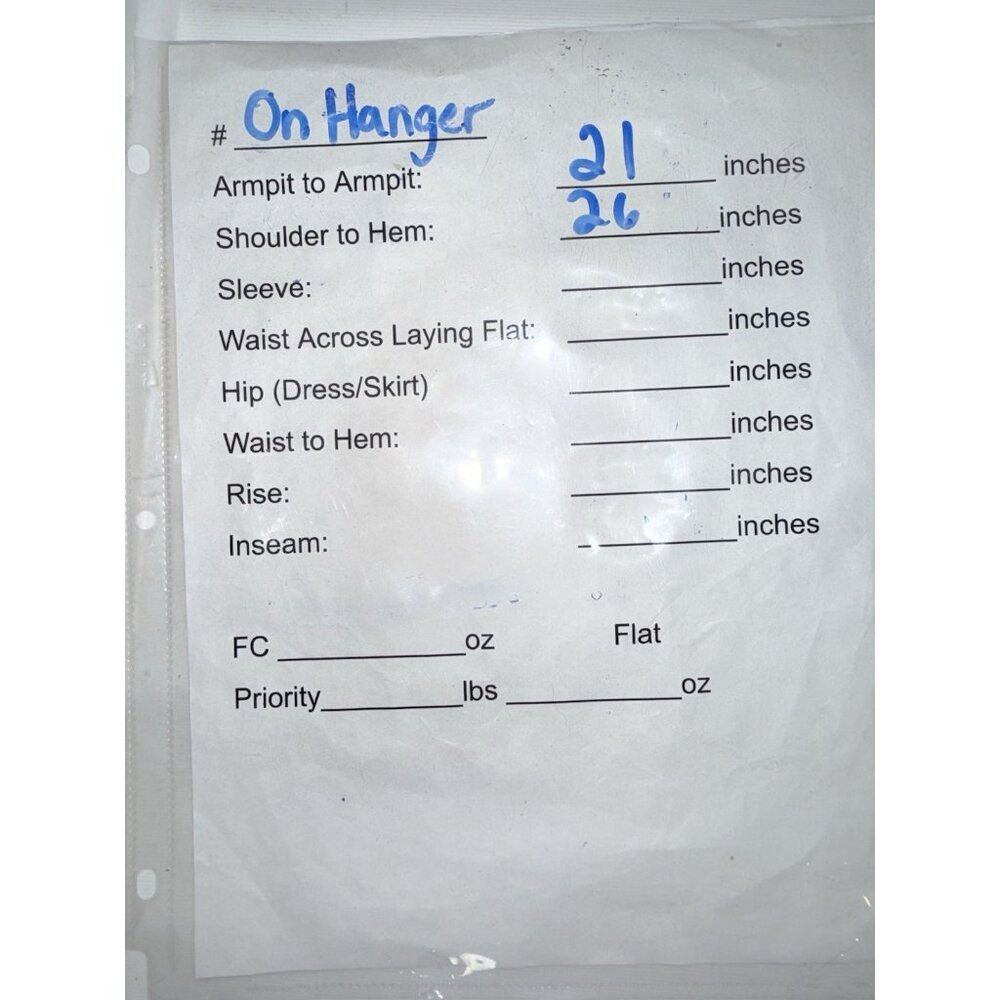 # On Hanger
Armpit to Armpit: 21 inches
Shoulder to Hem: 26 inches
Sleeve: ________ inches
Waist Across Laying Flat: ________ inches
Hip (Dress/Skirt) ________ inches
Waist to Hem: ________ inches
Rise: ________ inches
Inseam: ________ inches
FC ________ oz Flat
Priority ________ lbs ________ oz